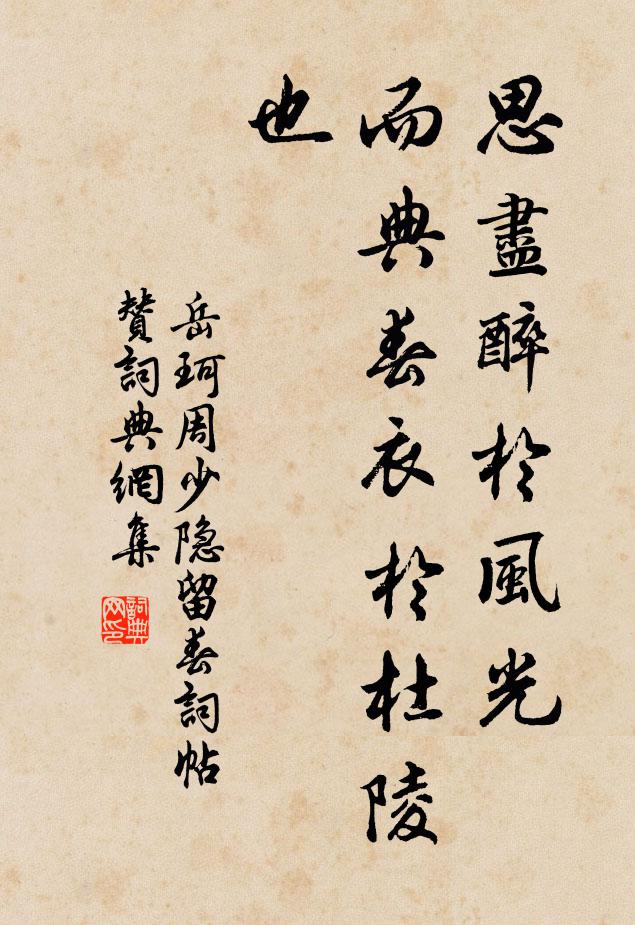 思盡醉於風光
而典春衣於杜陵
也
岳珂周少隐留春詞帖
贊詞典網集
詞典
网印